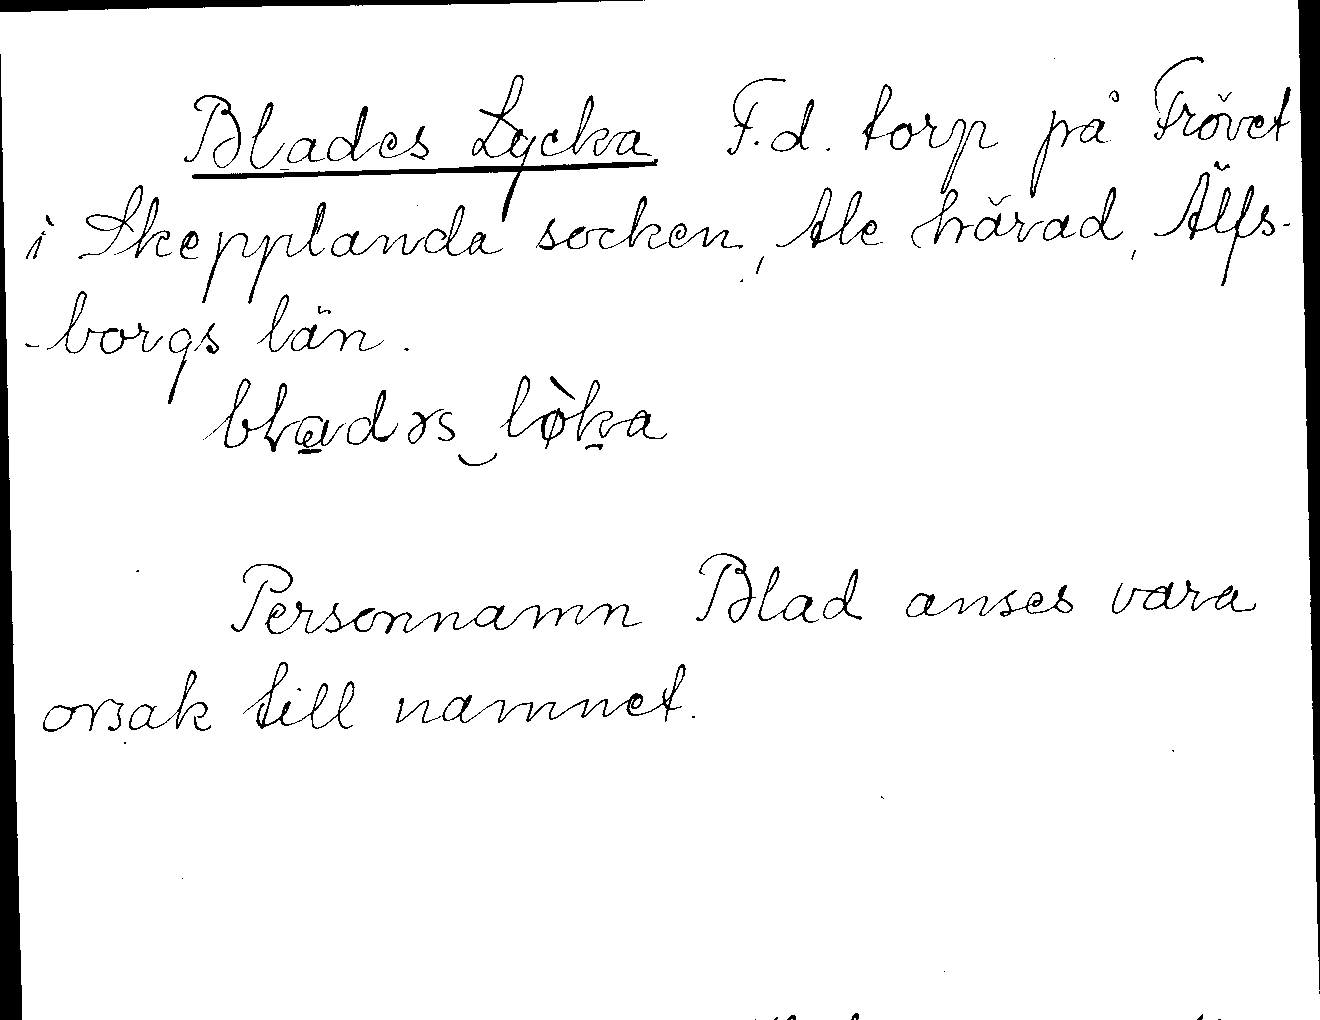 Blades Lycka F.d. torp på Frövet
i Skepplanda socken, Ale härad, Älfs-
-borgs län.
bladəs‿lø̀ka
Personnamn Blad anses vara
orsak till namnet.